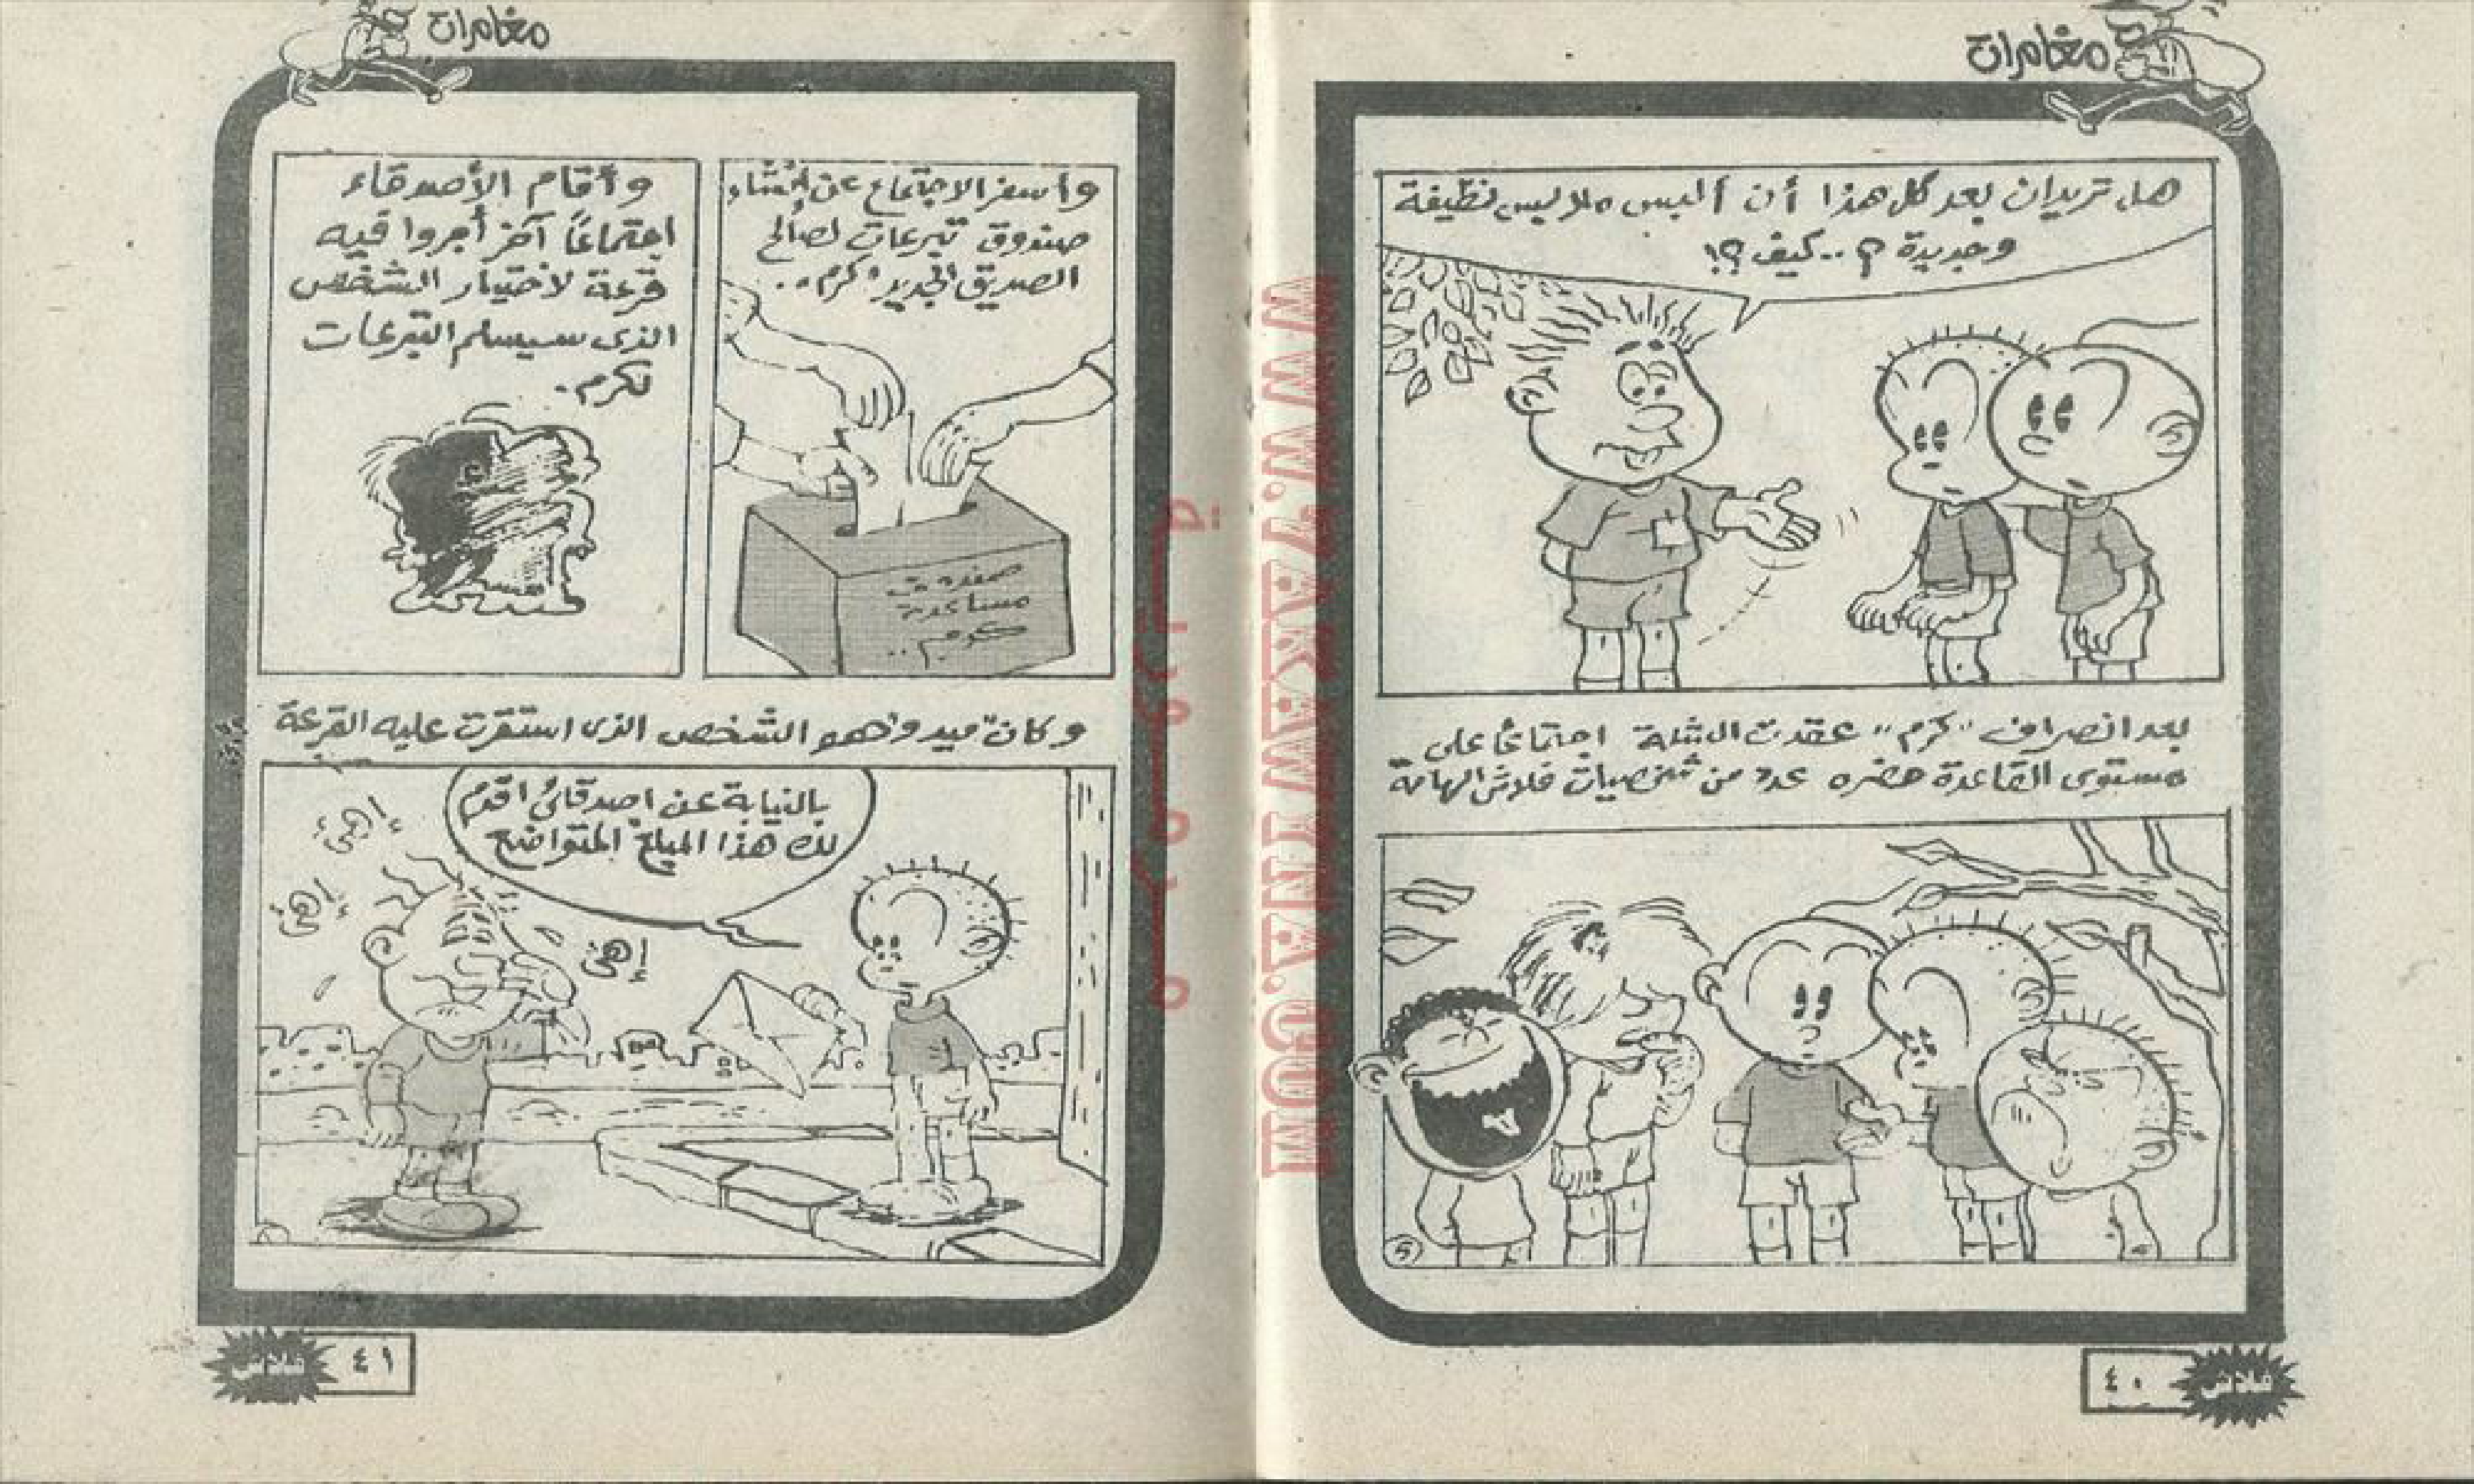 مغامرات
هل تريدان بعد كل هذا أن ألبس ملابس نظيفة
وجديدة ؟ .. كيف ؟!
بعد انصراف "كرم" عقدت الشلة اجتماعًا على
مستوى القاعدة حضره عدد من شخصيات فلاش الهامة
٤٠
فلاش
مغامرات
وأسفر الاجتماع عن إنشاء
صندوق تبرعات لصالح
الصديق الجديد "كرم"..
صندوق
مساعدة
كرم ..
وأقام الأصدقاء
اجتماعًا آخر أجروا فيه
قرعة لاختيار الشخص
الذى سيسلم التبرعات
لكرم.
وكان ميدو هو الشخص الذى استقرت عليه القرعة
بالنيابة عن أصدقائى أقدم
لك هذا المبلغ المتواضع
إهئ
إهئ
إهئ
٤١
فلاش